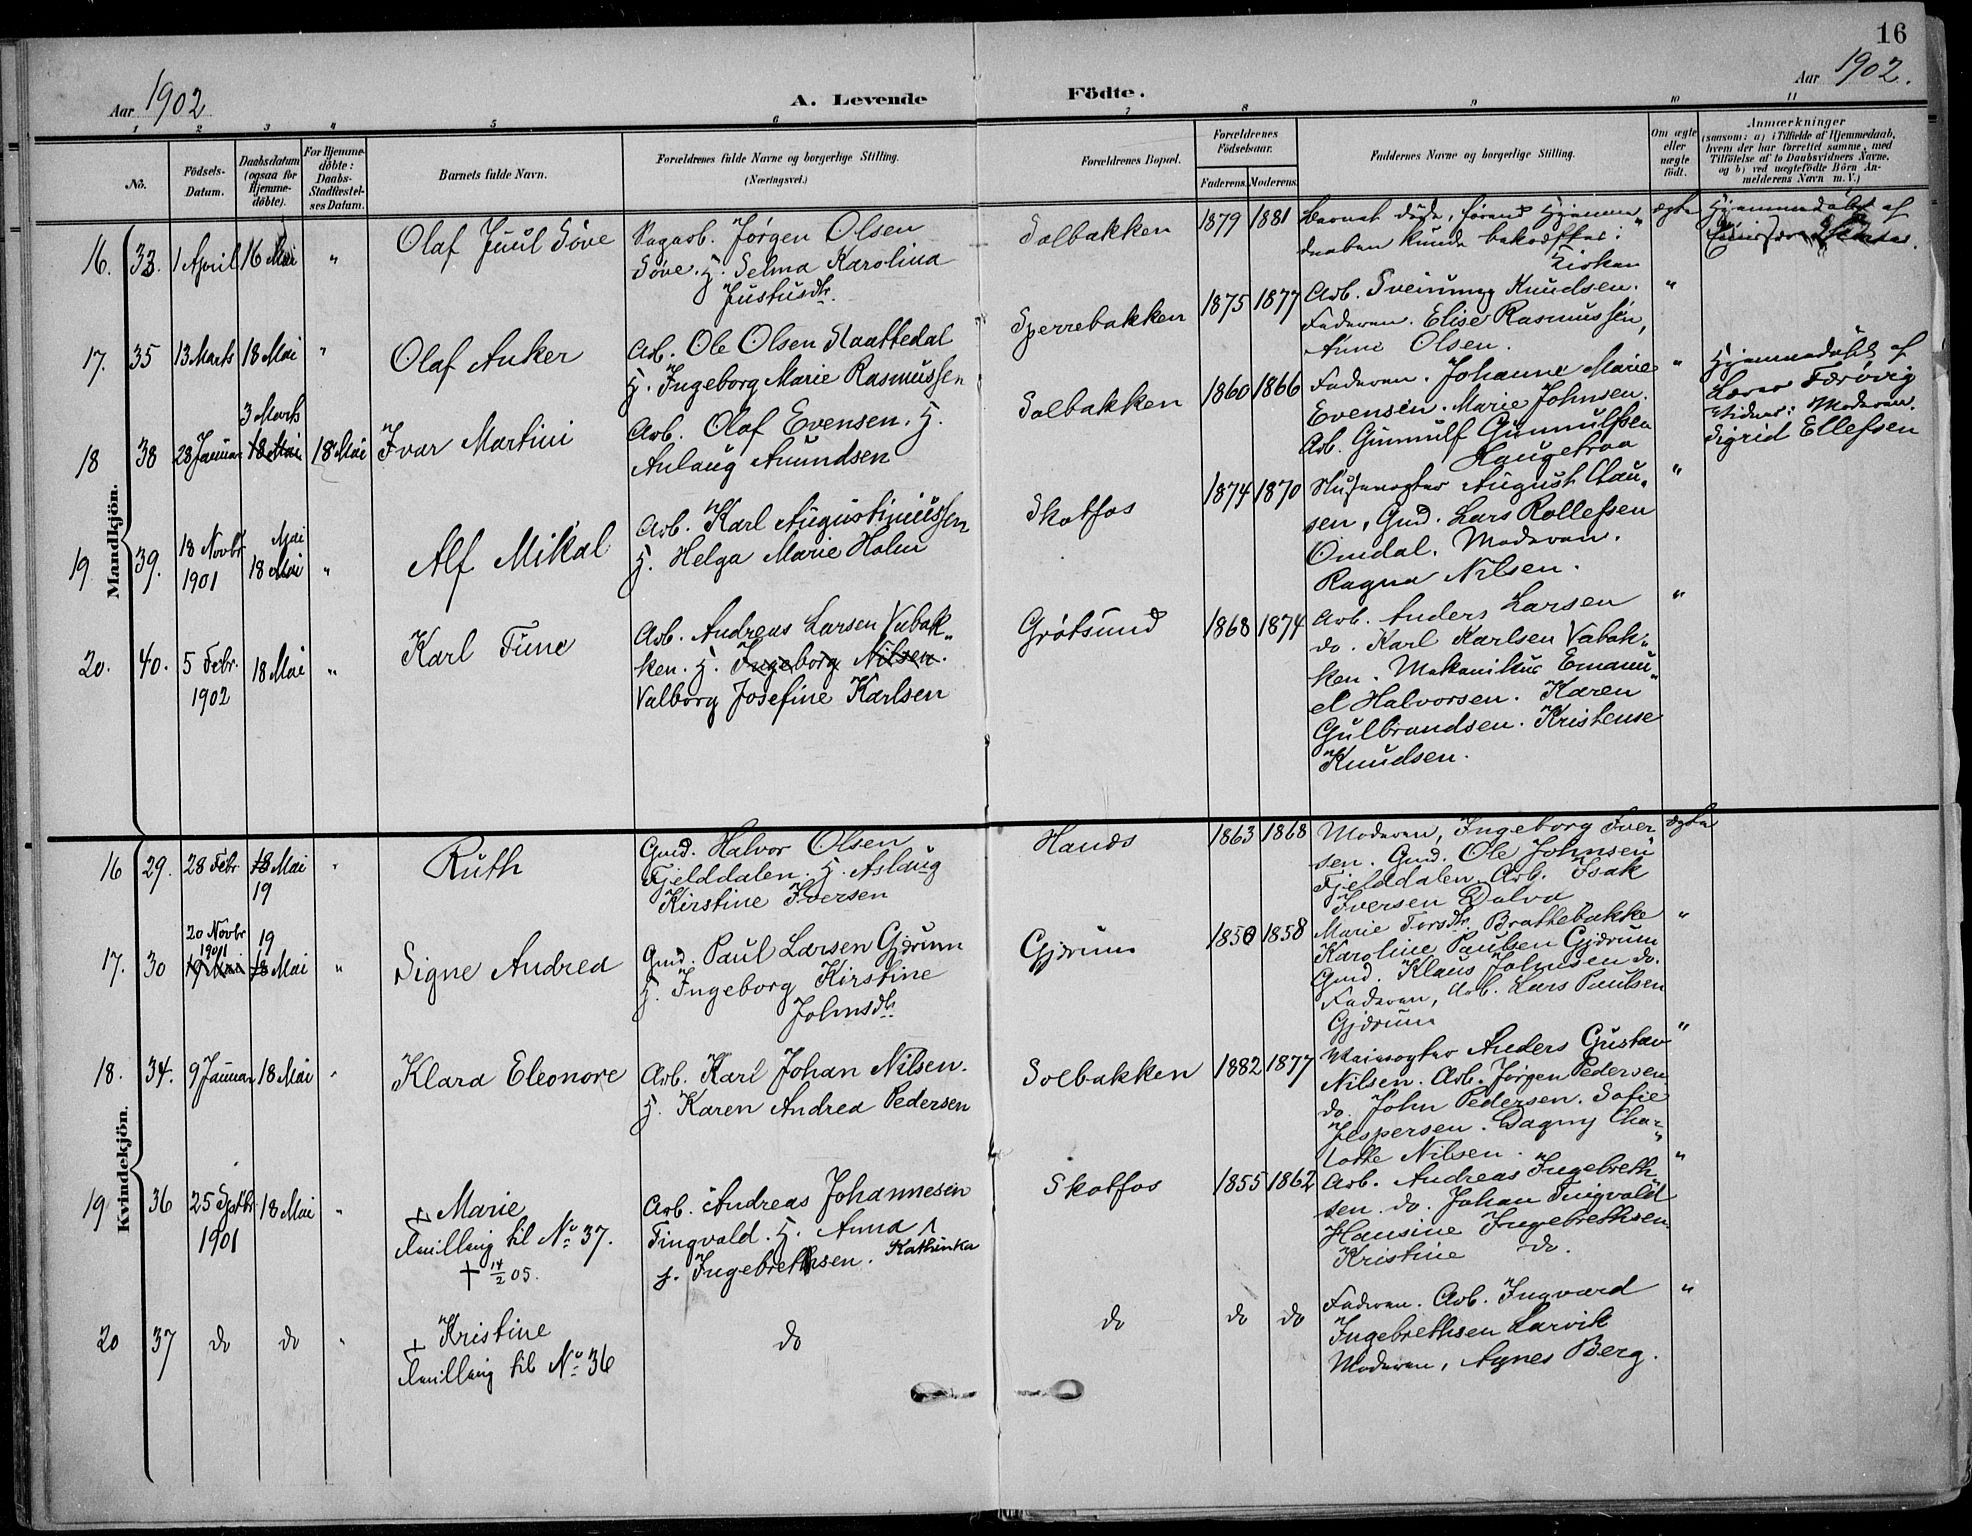 16
Aar 1902
A. Levende Födte.
Aar 1902.
1 2 3 4 5 6 7 8 9 10 11
No.
Födsels-
Datum.
Daabsdatum
(ogsaa for
Hjemme-
döbte).
For Hjemme-
döbte:
Daabs-
Stadfæstel-
ses Datum.
Barnets fulde Navn.
Forældrenes fulde Navne og borgerlige Stilling.
(Næringsvei.)
Forældrenes Bopæl.
Forældrenes
Födselsaar.
Faderens. Moderens.
Faddernes Navne og borgerlige Stilling.
Om ægte
eller
uægte
födt.
Anmærkninger
(saasom: a) i Tilfælde af Hjemmedaab,
hvem der har forrettet samme, med
Tilföielse af to Daabsvidners Navne,
og b) ved uægtefödte Börn An-
melderens Navn m. V.)
Mandkjön.
16. 33. 1 April 16 Mai "
Olaf Juul Söve
Sagarb. Jørgen Olsen
Söve. H. Selma Karolina
Justusdtr.
Solbakken
1879 1881
Barnet døde, förend Hjemme
daaben kunde bekræftes i
Kirken
ægte
Hjemmedöbt af
17. 35 13 Marts 18 Mai "
Olaf Anker
Arb. Ole Olsen Slaattedal
H. Ingeborg Marie Rasmussen
Sperrebakken
1875 1877
Arb. Sveinung Knudsen.
Faderen. Elise Rasmussen,
Anne Olsen.
"
18 38 28 Januar 3 Marts 18 Mai 18 Mai
Ivar Martini
Arb. Olaf Evensen. H.
Anlaug Amundsen
Solbakken
1860 1866
Faderen. Johanne Marie
Evensen. Marie Johnsen.
Arb. Gunnulf Gunnulfsen
Haugetraa
"
Hjemmedöbt af
Lærer Færövig
Vidner: Moderen.
Sigrid Ellefsen
19 39. 18 Novbr 1901 Mai 18 Mai "
Alf Mikal
Arb. Karl Augustiniussen
H. Helga Marie Holm
Skotfos
1874 1870
August Clau-
sen, Gmd. Lars Rollefsen
Omdal. Moderen.
Ragna Nilsen.
"
20. 40. 5 Febr. 1902 18 Mai "
Karl Tune
Arb. Andreas Larsen Vabak-
ken. H. Ingeborg Nilsen.
Valborg Josefine Karlsen
Grötsund
1868 1874
Arb. Anders Larsen
do. Karl Karlsen Vabak-
ken. Mekanikus Emanu-
el Halvorsen. Karen
Gulbrandsen. Kristense
Knudsen.
"
Kvindekjön.
16 29. 28 Febr 18 Mai 19 "
Ruth
Gmd. Halvor Olsen
Fjelddalen. H. Aslaug
Kirstine Iversen
Hanös
1863 1868
Moderen, Ingeborg Iver-
sen. Gmd. Ole Johnsen
Fjelddalen. Arb. Isak
Iversen Dalva
ægte
17. 30 20 Novbr 1901 19 Mai 19 18 Mai "
Signe Andrea
Gmd. Paul Larsen Gjærum
H. Ingeborg Kirstine
Johnsdtr
Gjærum
1850 1858
Marie Torsdtr. Brattebakke
Karoline Paulsen Gjærum
Gmd. Klaus Johnsen do.
Faderen, Arb. Lars Paulsen
Gjærum
"
18. 34. 9 Januar 18 Mai "
Klara Eleonore
Arb. Karl Johan Nilsen.
H. Karen Andrea Pedersen
Solbakken
1882 1877
Anders Gustav
Nilsen. Arb. Jørgen Pedersen
do. John Pedersen. Sofie
Jespersen. Dagny Cha-
lotte Nilsen.
"
19 36 25 Sptbr 1901 18 Mai "
+ Marie
Tvilling til No 37.
+ 14/2 05.
Arb. Andreas Johannesen
Tingvald. H. Anna
Kathinka
f. Ingebrethsen.
Skotfos
1855 1862
Arb. Andreas Ingebreth-
sen. do. Johan Tingvald
Hansine Ingebrethsen
Kristine do.
"
20 37 do do "
+ Kristine
Tvilling til No 36
do
do
do do
Faderen. Arb. Ingvard
Ingebrethsen Larvik
Moderen, Agnes Berg.
"